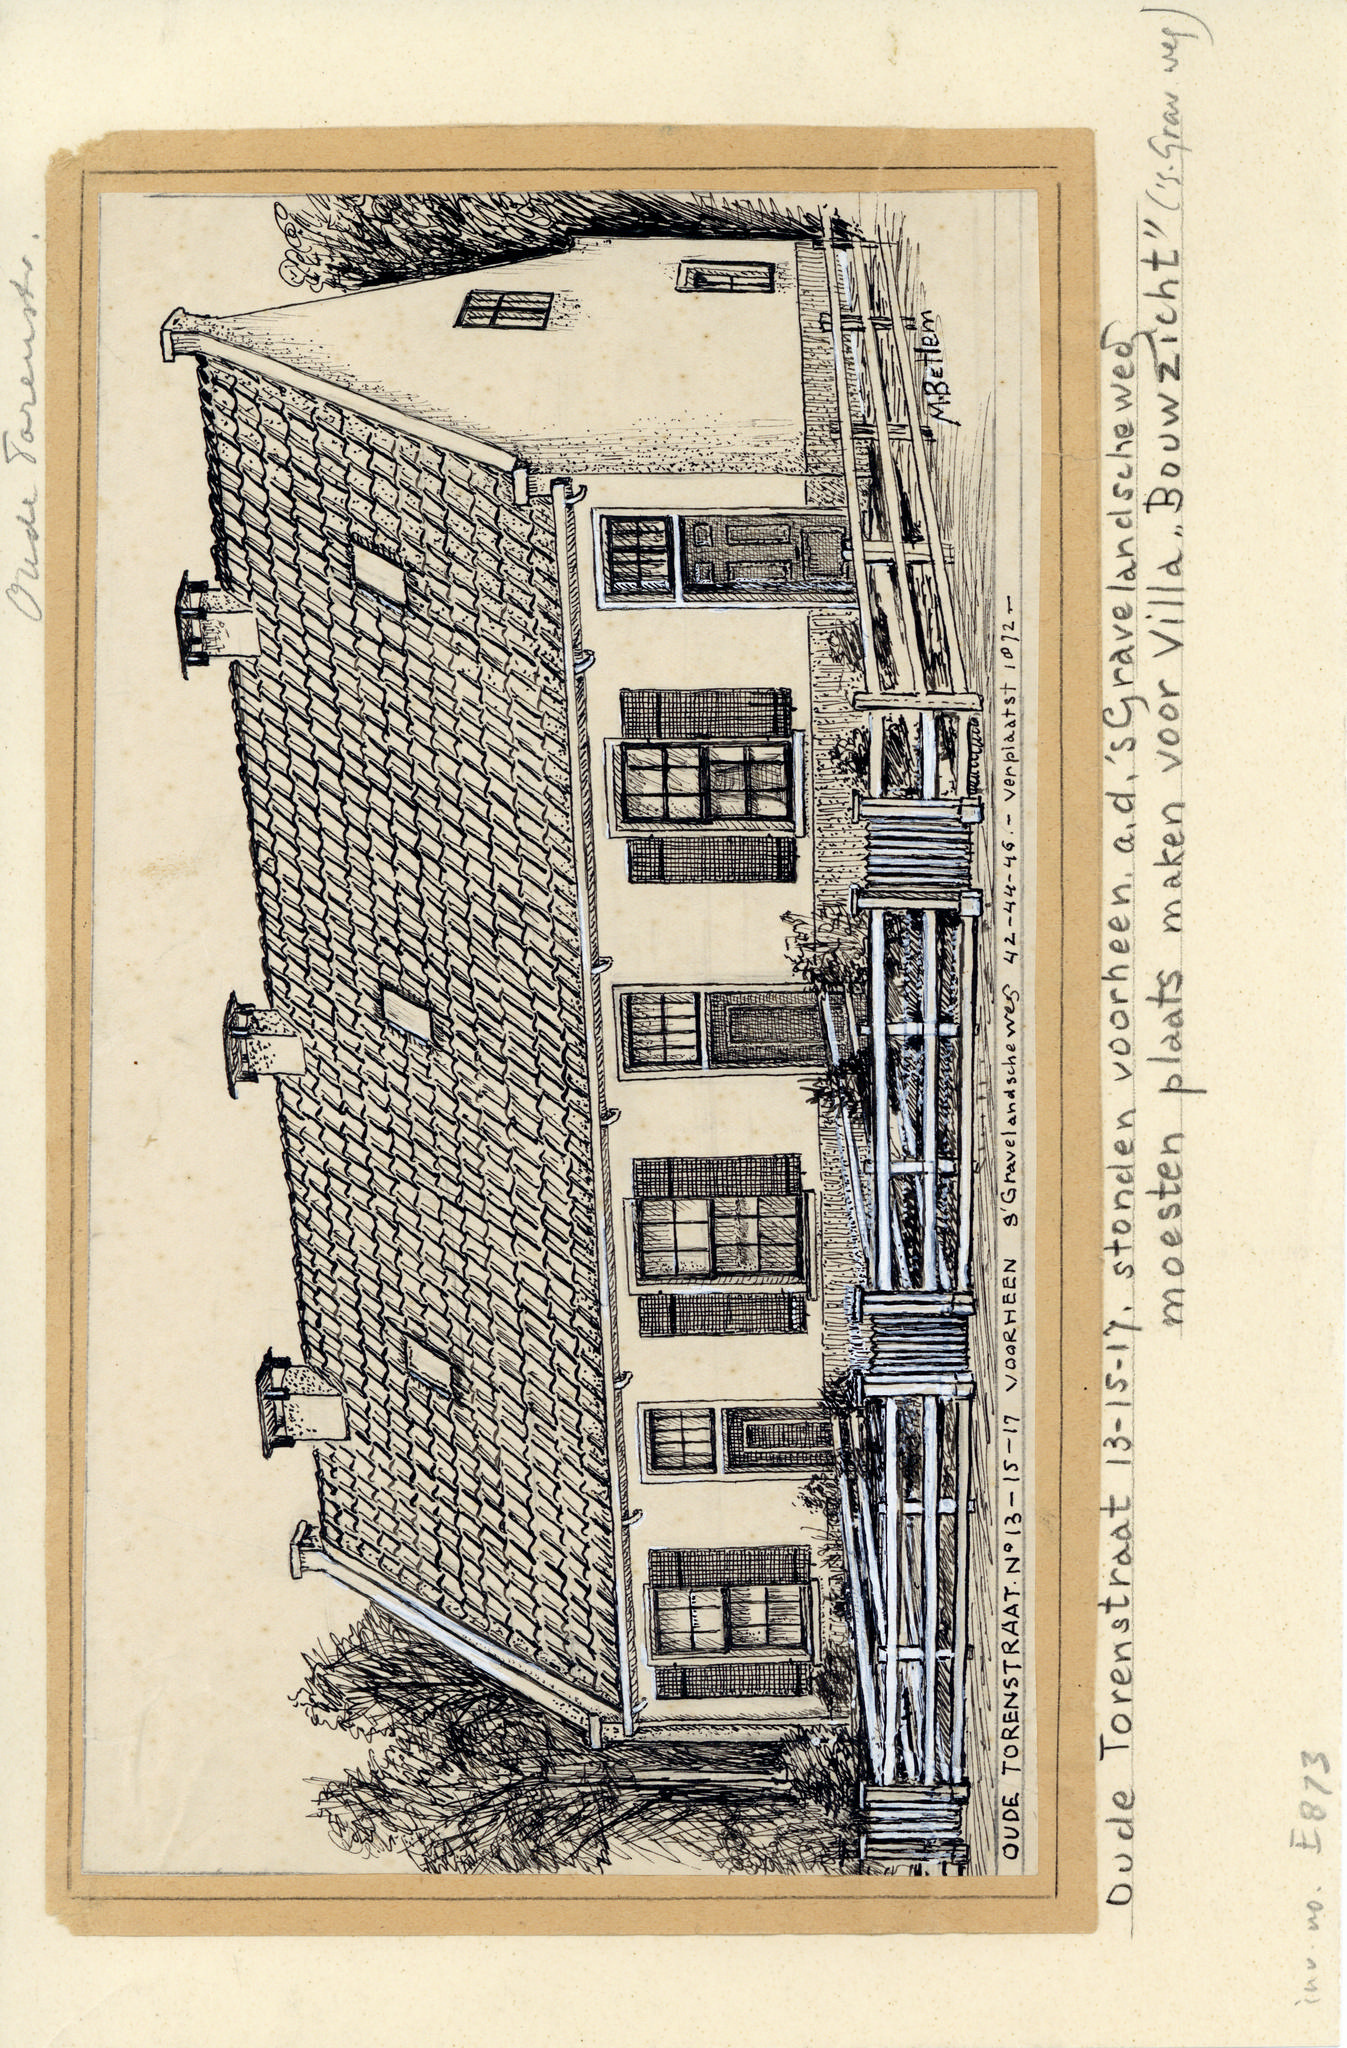 Oude Torenstr.
M. Betlem
OUDE TORENSTRAAT. No 13-15-17 VOORHEEN s'Gravelandscheweg 42-44-46.- verplaatst 1872-
Oude Torenstraat 13-15-17, stonden voorheen a.d. 's Gravelandscheweg
moesten plaats maken voor Villa „Bouwzicht" ('s-Grav. weg)
inv. no. E873